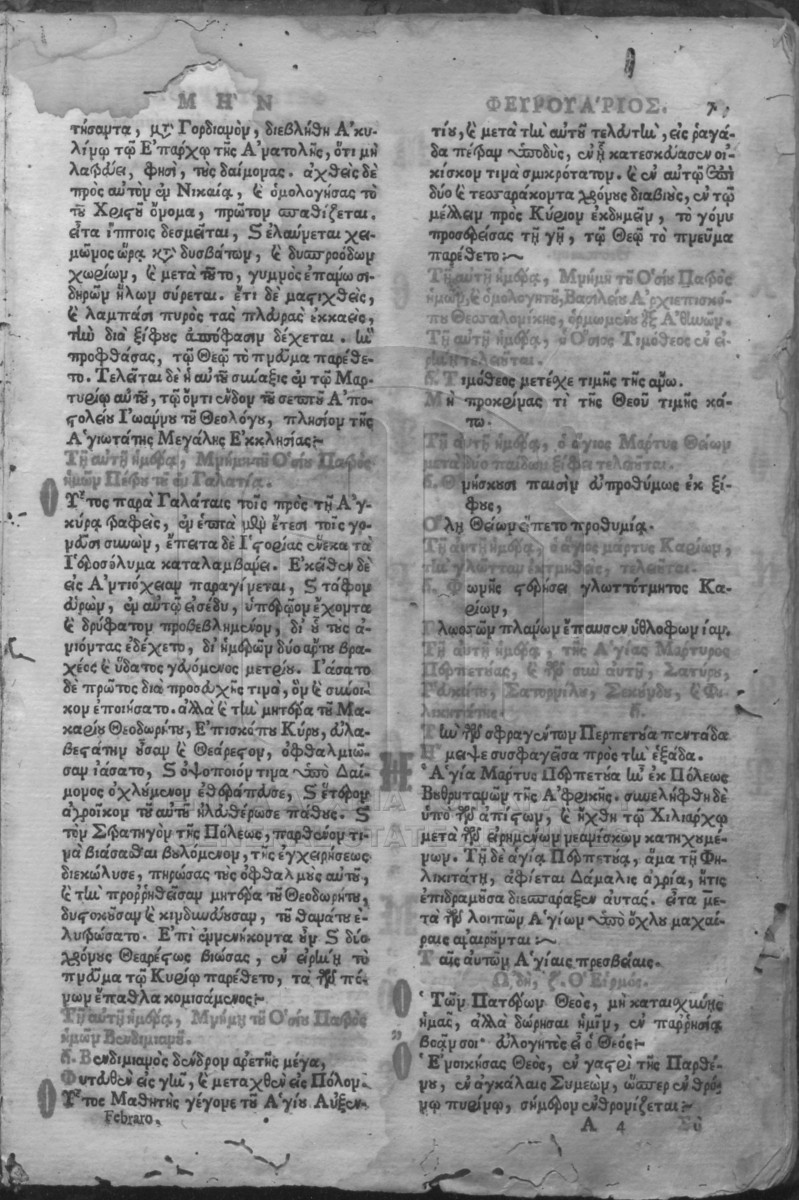 ΜΗ᾽Ν
τήσαντα, μτ̀ Γορδιανὸν, διεβλήθη Ἀκυ-
λίνῳ τῷ Ἐπάρχῳ τῆς Ἀνατολῆς, ὅτι μὴ
λατρεύει, φησὶ, τοὺς δαίμονας. ἀχθεὶς δὲ
πρὸς αὐτὸν ἐν Νικαίᾳ, καὶ ὁμολογήσας τὸ
τοῦ Χριστοῦ ὄνομα, πρῶτον σπαθίζεται,
εἶτα ἵπποις δεσμεῖται, καὶ ἐλαύνεται χει-
μῶνος ὥρᾳ κτ̀ δυσβάτων, καὶ δυσπροόδων
χωρίων, καὶ μετὰ τοῦτο, γυμνὸς ἐπάνω σι-
δηρῶν ἥλων σύρεται. ἔτι δὲ μαστιχθεὶς,
καὶ λαμπάσι πυρὸς τὰς πλευρὰς ἐκκαεὶς,
τὴν διὰ ξίφους ἀπόφασιν δέχεται. ἣν
προφθάσας, τῷ Θεῷ τὸ πνεῦμα παρέθε-
το. Τελεῖται δὲ ἡ αὐτοῦ σύναξις ἐν τῷ Μαρ-
τυρίῳ αὐτοῦ, τῷ ὄντι ἔνδον τοῦ σεπτοῦ Ἀπο-
στολείου Ἰωάννου τοῦ Θεολόγου, πλησίον τῆς
Ἁγιωτάτης Μεγάλης Ἐκκλησίας:~
Τῇ αὐτῇ ἡμέρᾳ, Μνήμη τοῦ Ὁσίου Πατρὸς
ἡμῶν Πέτρου τοῦ ἐν Γαλατίᾳ.
Οὗτος παρὰ Γαλάταις τοῖς πρὸς τῇ Ἀγ-
κύρᾳ τραφεὶς, ἐν ἑπτὰ μὲν ἔτεσι τοῖς γο-
νεῦσι συνὼν, ἔπειτα δὲ Ἱστορίας ἕνεκα τὰ
Ἱεροσόλυμα καταλαμβάνει. Ἐκεῖθεν δὲ
εἰς Ἀντιόχειαν παραγίνεται, καὶ τάφον
εὑρὼν, ἐν αὐτῷ εἰσέδυ, ὑπερῷον ἔχοντα
καὶ δρύφατον προβεβλημένον, δι' οὗ τοὺς ἀ-
νιόντας ἐδέχετο, δι' ἡμερῶν δύο ἄρτου βρα-
χέος καὶ ὕδατος γευόμενος μετρίου. Ἰάσατο
δὲ πρῶτος διὰ προσευχῆς τινὰ, ὃν καὶ σύνοι-
κον ἐποιήσατο. ἀλλὰ καὶ τὴν μητέρα τοῦ Μα-
καρίου Θεοδωρήτου, Ἐπισκόπου Κύρου, εὐλα-
βεστάτην οὖσαν καὶ Θεάρεστον, ὀφθαλμιῶ-
σαν ἰάσατο, καὶ ὀψοποιόν τινα ὑπὸ Δαί-
μονος ὀχλούμενον ἐθεράπευσε, καὶ ἕτερον
ἀγροῖκον τοῦ αὐτοῦ ἠλευθέρωσε πάθους. καὶ
τὸν Στρατηγὸν τῆς Πόλεως, παρθένον τι-
νὰ βιάσασθαι βουλόμενον, τῆς ἐγχειρήσεως
διεκώλυσε, πηρώσας τοὺς ὀφθαλμοὺς αὐτοῦ,
καὶ τὴν προῤῥηθεῖσαν μητέρα τοῦ Θεοδωρήτου,
δυστοκοῦσαν καὶ κινδυνεύουσαν, τοῦ θανάτου ἐ-
λυτρώσατο. Ἐπὶ ἐννενήκοντα οὖν καὶ δύο
χρόνους Θεαρέστως βιώσας, ἐν εἰρήνῃ τὸ
πνεῦμα τῷ Κυρίῳ παρέθετο, τὰ τῶν πό-
νων ἔπαθλα κομισάμενος:~
Τῇ αὐτῇ ἡμέρᾳ, Μνήμη τοῦ Ὁσίου Πατρὸς
ἡμῶν Βενδιμιανοῦ.
δ. Βενδιμιανὸς δένδρον ἀρετῆς μέγα,
Φυτευθὲν εἰς γῆν, καὶ μεταχθὲν εἰς Πόλον.
Οὗτος Μαθητὴς γέγονε τοῦ Ἁγίου Αὐξεν-
Febraro.
ΦΕΥΡΟΥΑ᾽ΡΙΟΣ. 7
τίου, καὶ μετὰ τὴν αὐτοῦ τελευτὴν, εἰς ῥαγά-
δα πέτραν ὑποδὺς, ἐν ᾗ κατεσκεύασεν οἰ-
κίσκον τινὰ σμικρότατον. καὶ ἐν αὐτῷ ἐπὶ
δύο καὶ τεσσαράκοντα χρόνους διαβιοὺς, ἐν τῷ
μέλλειν πρὸς Κύριον ἐκδημεῖν, τὸ γόνυ
προσερείσας τῇ γῇ, τῷ Θεῷ τὸ πνεῦμα
παρέθετο:~
Τῇ αὐτῇ ἡμέρᾳ, Μνήμη τοῦ Ὁσίου Πατρὸς
ἡμῶν, καὶ ὁμολογητοῦ, Βασιλείου Ἀρχιεπισκό-
που Θεσσαλονίκης, ὁρμωμένου ἐξ Ἀθηνῶν.
Τῇ αὐτῇ ἡμέρᾳ, ὁ Ὅσιος Τιμόθεος ἐν εἰ-
ρήνῃ τελειοῦται.
δ. Τιμόθεος μετέσχε τιμῆς τῆς ἄνω.
Μὴ προκρίνας τὶ τῆς Θεοῦ τιμῆς κά-
τω.
Τῇ αὐτῇ ἡμέρᾳ, ὁ ἅγιος Μάρτυς Θείων
μετὰ δύο παίδων ξίφει τελειοῦται.
δ. Θνήσκουσι παισὶν εὐπροθύμως ἐκ ξί-
φους,
Ὅλῃ Θείων εἵπετο προθυμίᾳ.
Τῇ αὐτῇ ἡμέρᾳ, ὁ ἅγιος μάρτυς Καρίων,
τὴν γλῶτταν ἐκτμηθεὶς, τελειοῦται.
δ. Φωνῆς στερήσει γλωττότμητος Κα-
ρίων,
Γλωσσῶν πλάνων ἔπαυσεν ὑθλοφωνίαν.
Τῇ αὐτῇ ἡμέρᾳ, τῆς Ἁγίας Μάρτυρος
Περπετούας, καὶ τῶν σὺν αὐτῇ, Σατύρου,
Ῥευκάτου, Σατορνίλου, Σεκούνδου, καὶ Φι-
λικιτάτης. δ.
Τὴν τῶν σφαγέντων Περπετούα πεντάδα
Ἤμειψε συσφαγεῖσα πρὸς τὴν ἑξάδα.
Ἡ Ἁγία Μάρτυς Περπετούα ἦν ἐκ Πόλεως
Βουθρυτανῶν τῆς Ἀφρικῆς. συνελήφθη δὲ
ὑπὸ τῶν ἀπίστων, καὶ ἤχθη τῷ Χιλιάρχῳ
μετὰ τῶν εἰρημένων νεανίσκων κατηχουμέ-
νων. Τῇ δὲ ἁγίᾳ Περπετούᾳ, ἅμα τῇ Φη-
λικιτάτῃ, ἀφίεται Δάμαλις ἀγρία, ἥτις
ἐπιδραμοῦσα διεσπάραξεν αὐτάς. εἶτα με-
τὰ τῶν λοιπῶν Ἁγίων ὑπὸ ὄχλου μαχαί-
ραις ἀναιροῦνται:~
Ταῖς αὐτῶν Ἁγίαις πρεσβείαις.
Ὠδὴ, ζ. Ὁ Εἱρμός.
Ὁ Τῶν Πατέρων Θεὸς, μὴ καταισχύνῃς
ἡμᾶς, ἀλλὰ δώρησαι ἡμῖν, ἐν παῤῥησίᾳ
βοᾶν σοι· εὐλογητὸς εἶ ὁ Θεός:~
Ὁ Ἐνοικήσας Θεὸς, ἐν γαστρὶ τῆς Παρθέ-
νου, ἐν ἀγκάλαις Συμεὼν, ὥσπερ ἐν θρό-
νῳ πυρίνῳ, σήμερον ἐνθρονίζεται:~
Α 4 Σὺ